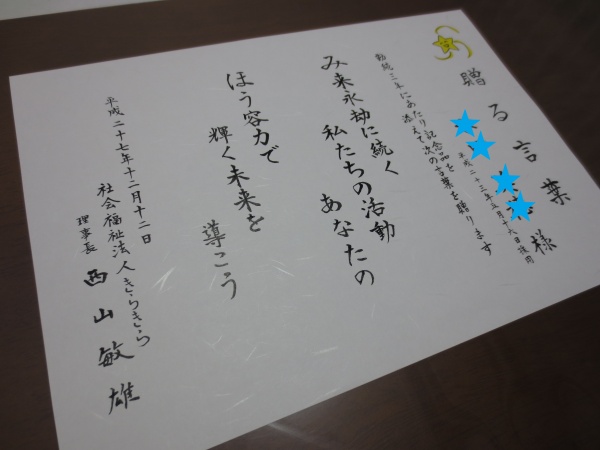 贈る言葉
様
平成二十三年
日採用
勤続三年にあたり記念品を
添えて次の言葉を贈ります
み来永劫に続く
私たちの活動
あなたの
ほう容力で
輝く未来を
導こう
平成二十七年十二月十二日
社会福祉法人きらきら
理事長 西山敏雄